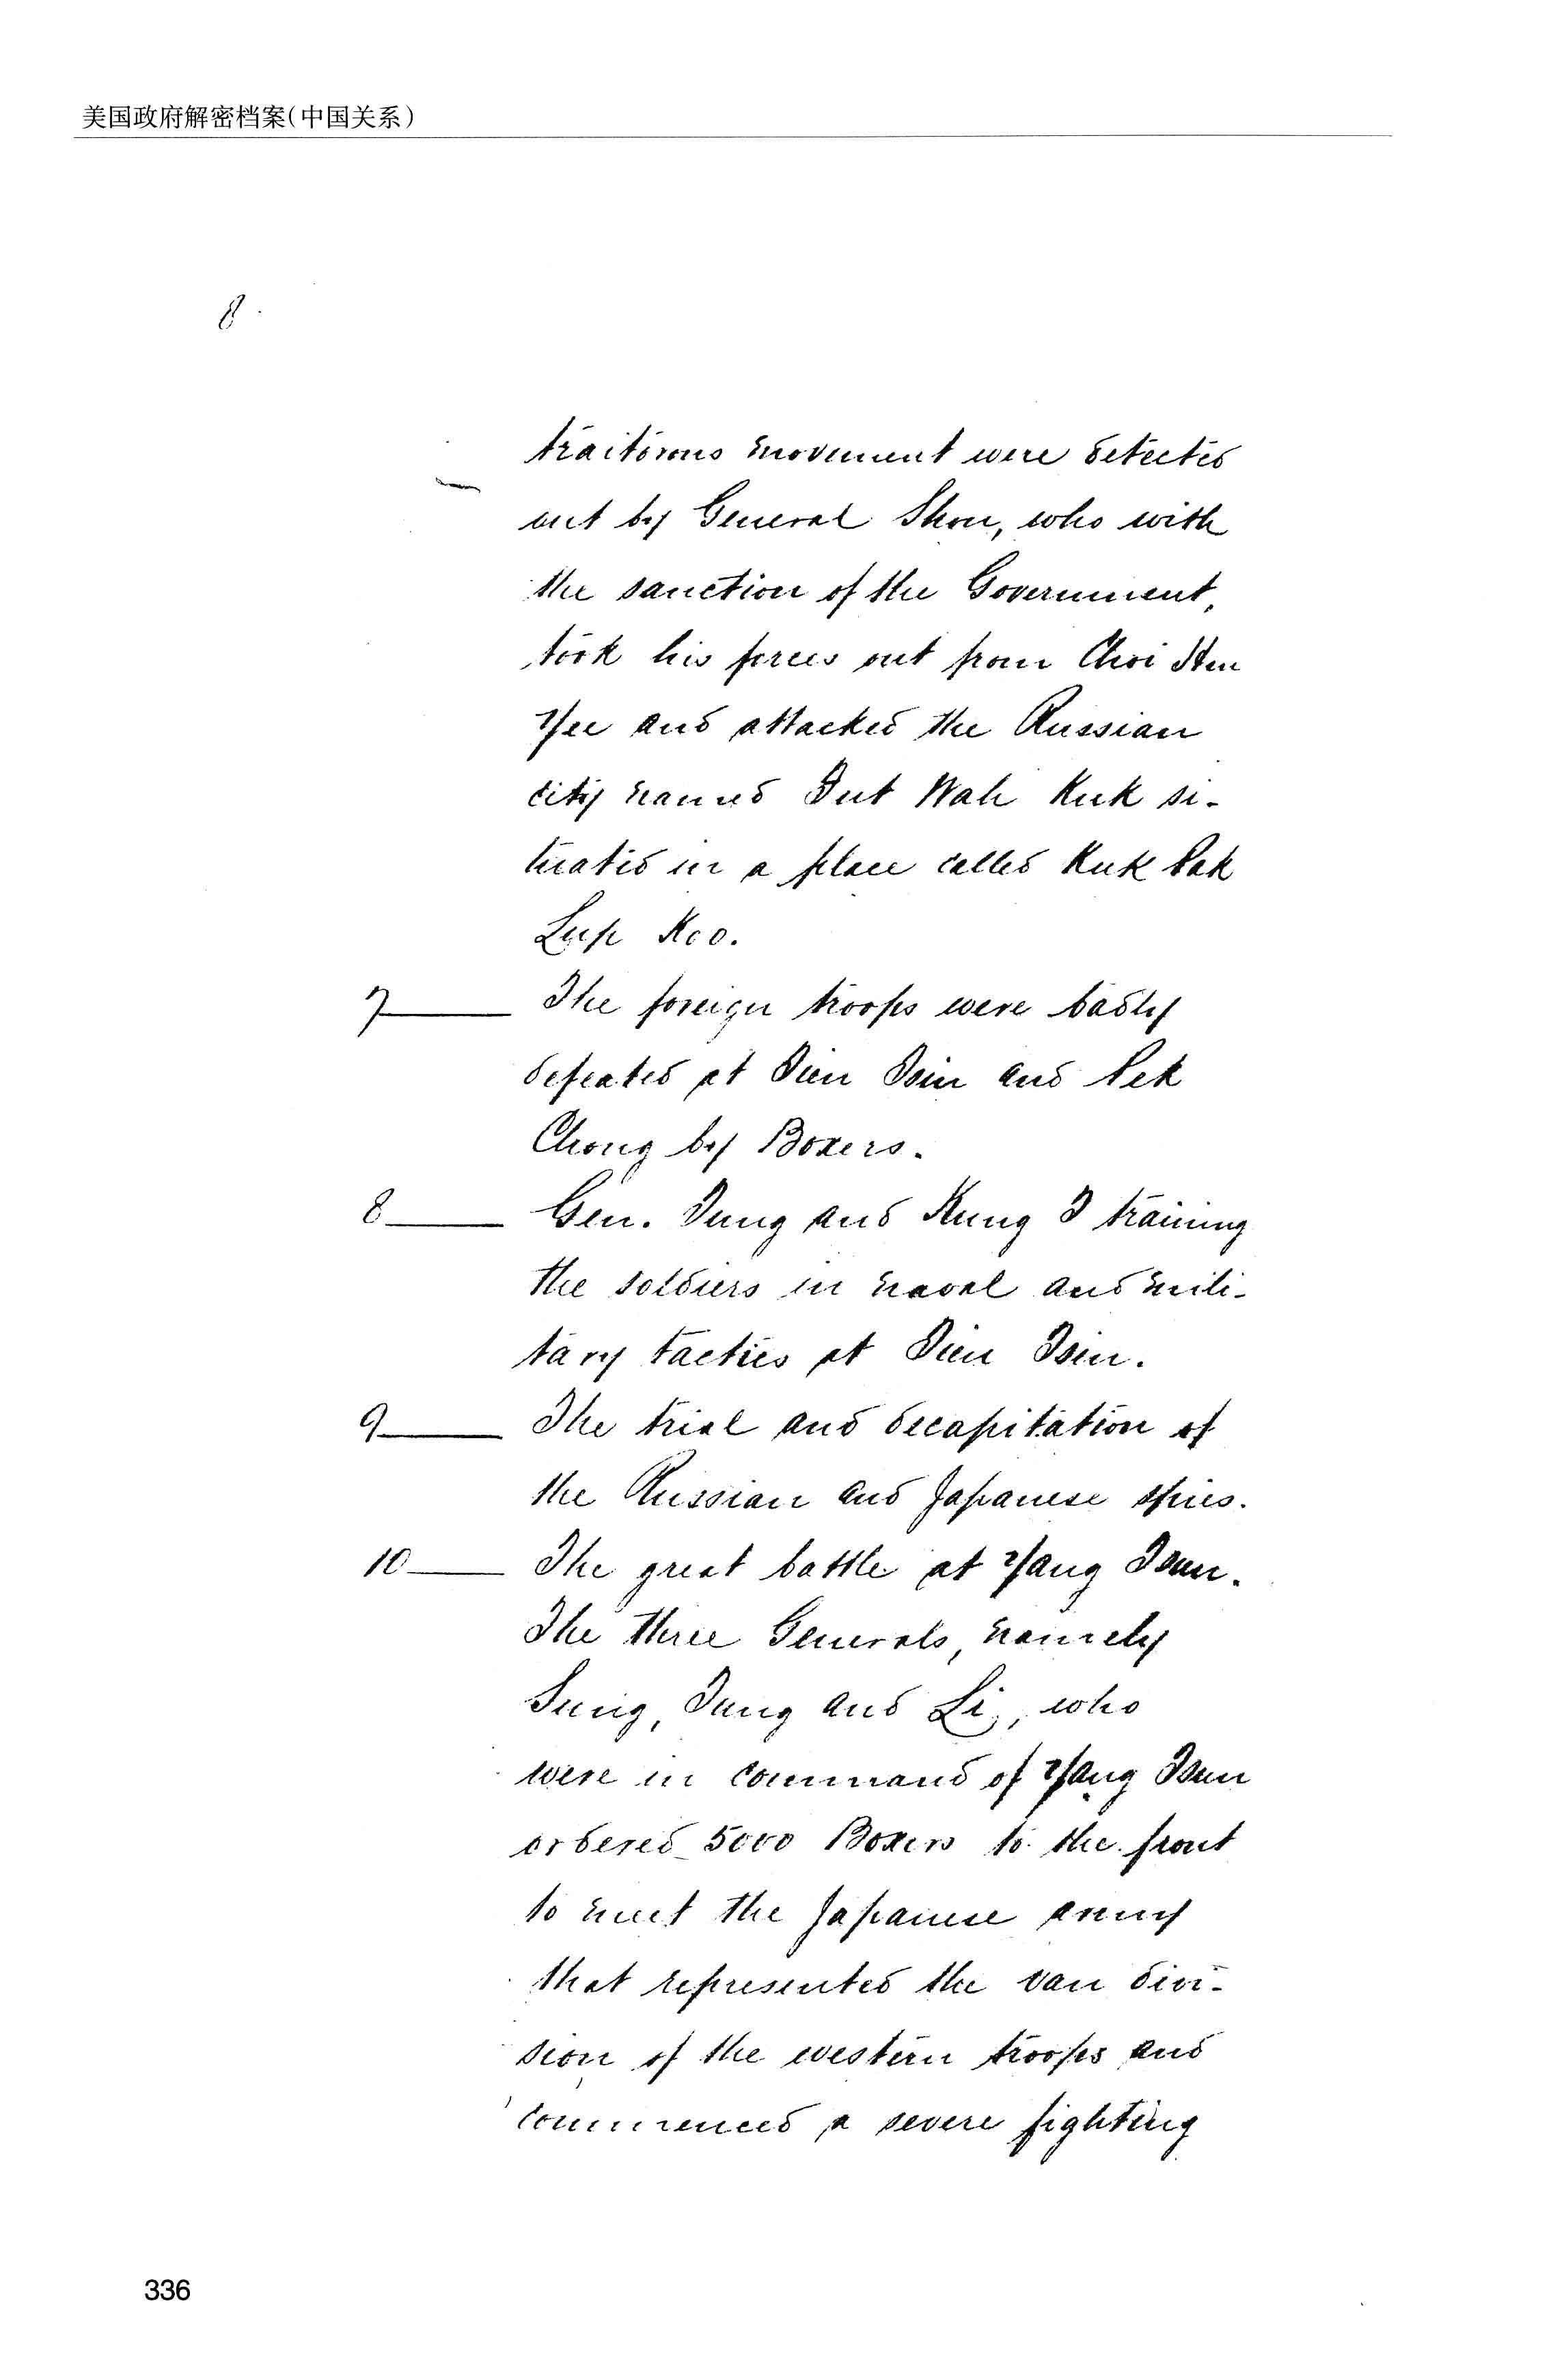 美国政府解密档案(中国关系)
8.
traitorous movement were detected
out by General Shou, who with
the sanction of the Government,
took his forces out from Choi Hun
Yee and attacked the Russian
city named Tut Wah Kuk si-
tuated in a place called Kuk Pak
Lup Koo.
7 The foreign troops were badly
defeated at Tien Tsin and Pek
Chong by Boxers.
8 Gen. Tung and Kung I training
the soldiers in naval and mili-
tary tactics at Tien Tsin.
9 The trial and decapitation of
the Russian and Japanese spies.
10 The great battle at Yang Tsun.
The three Generals, namely
Sung, Tung and Li, who
were in command of Yang Tsun
ordered 5000 Boxers to the front
to meet the Japanese army
that represented the van divi-
sion of the western troops and
commenced a severe fighting
336